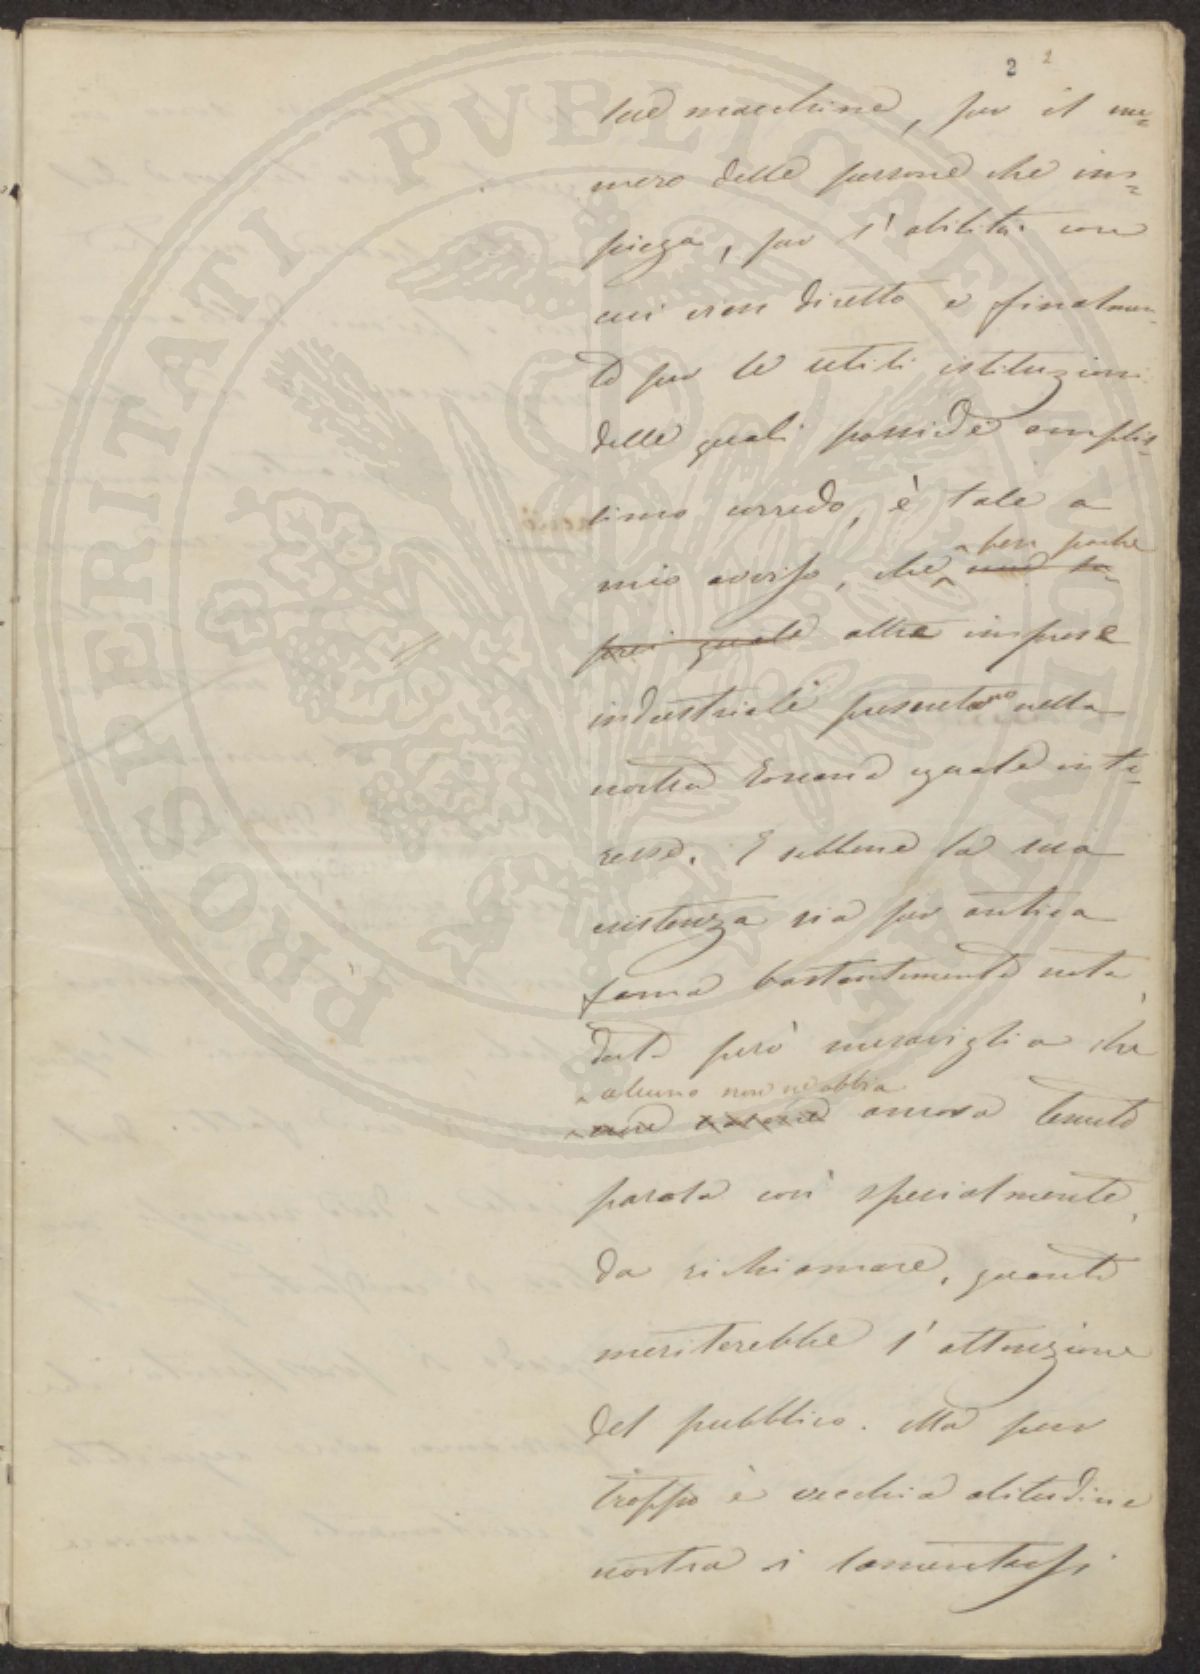 2 2
sue macchine, per il nu=
mero delle persone che im=
piega, per l'abilità con
cui vien diretto e finalmen=
te per le utili istituzioni
delle quali possiede amplis=
simo corredo, è tale a
ben poche
mio avviso, che non sa=
prei quale altre imprese
industriali presentano nella
nostra Toscana eguale inte=
resse. E sebbene la sua
esistenza sia per antica
fama bastantemente nota,
desta però meraviglia che
alcuno non ne abbia
ancora tenuto
parola così specialmente,
da richiamare, quanto
meriterebbe l'attenzione
del pubblico. Ma pur
troppo è vecchia abitudine
nostra i lamentarsi
PROSPERITATI PVBLICAE AVGENDAE